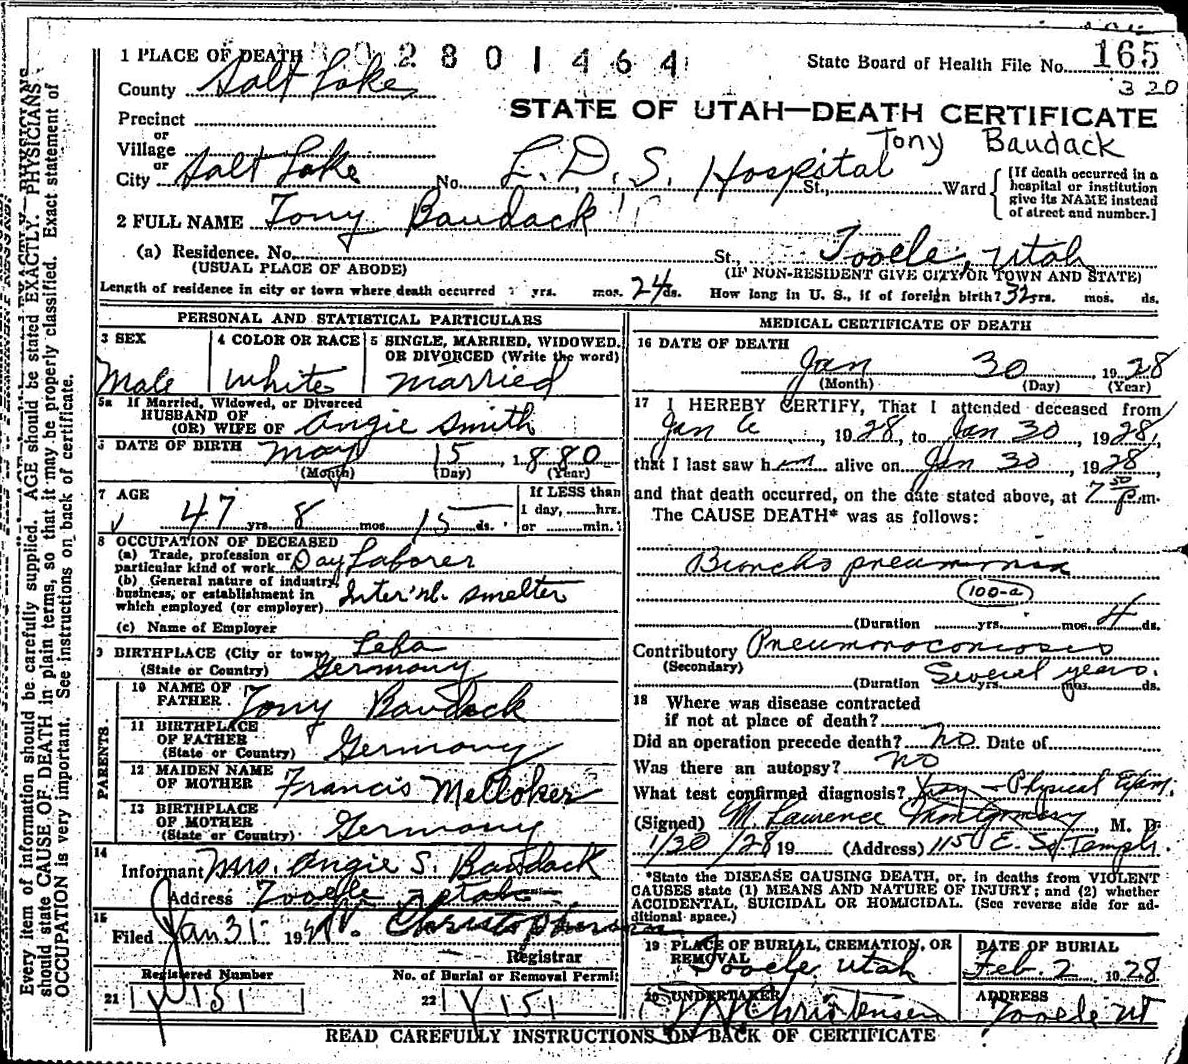 1 PLACE OF DEATH 02801464
State Board of Health File No. 165
County Salt Lake
3 20
STATE OF UTAH—DEATH CERTIFICATE
Precinct
Tony Baudack
or
Village
or
City Salt Lake No. L.D.S. Hospital St., Ward
[If death occurred in a hospital or institution give its NAME instead of street and number.]
2 FULL NAME Tony Baudack
(a) Residence. No. St., Tooele, Utah
(USUAL PLACE OF ABODE) (IF NON-RESIDENT GIVE CITY OR TOWN AND STATE)
Length of residence in city or town where death occurred yrs. mos. 24 ds. How long in U. S., if of foreign birth? 32 yrs. mos. ds.
PERSONAL AND STATISTICAL PARTICULARS
3 SEX Male
4 COLOR OR RACE White
5 SINGLE, MARRIED, WIDOWED, OR DIVORCED (Write the word) married
5a If Married, Widowed, or Divorced
HUSBAND OF
(OR) WIFE OF Angie Smith
6 DATE OF BIRTH May 15, 1880
(Month) (Day) (Year)
7 AGE 47 yrs. 8 mos. 15 ds.
If LESS than 1 day, hrs. or min.
8 OCCUPATION OF DECEASED
(a) Trade, profession or particular kind of work Day Laborer
(b) General nature of industry, business, or establishment in which employed (or employer) Inter'nl. smelter
(c) Name of Employer
9 BIRTHPLACE (City or town) Leba
(State or Country) Germany
PARENTS
10 NAME OF FATHER Tony Baudack
11 BIRTHPLACE OF FATHER (State or Country) Germany
12 MAIDEN NAME OF MOTHER Francis Melloker
13 BIRTHPLACE OF MOTHER (State or Country) Germany
14 Informant Mrs. Angie S. Baudack
Address Tooele Utah
15 Filed Jan 31 19
Registrar
Registered Number
21 151
No. of Burial or Removal Permit
22 151
MEDICAL CERTIFICATE OF DEATH
16 DATE OF DEATH
Jan 30, 1928
(Month) (Day) (Year)
17 I HEREBY CERTIFY, That I attended deceased from
Jan 6, 1928, to Jan 30, 1928,
that I last saw him alive on Jan 30, 1928,
and that death occurred, on the date stated above, at 7 50 p.m.
The CAUSE DEATH* was as follows:
Broncho pneumonia
100-a
(Duration yrs. mos. 4 ds.
Contributory Pneumonoconiosis
(Secondary)
(Duration Several years. yrs. mos. ds.
18 Where was disease contracted
if not at place of death?
Did an operation precede death? No. Date of
Was there an autopsy? No
What test confirmed diagnosis? Xray - Physical Exam.
(Signed) M. Laurence Montgomery, M. D.
1/30/28 19 (Address) 1150 E. So Temple.
*State the DISEASE CAUSING DEATH, or, in deaths from VIOLENT CAUSES state (1) MEANS AND NATURE OF INJURY; and (2) whether ACCIDENTAL, SUICIDAL OR HOMICIDAL. (See reverse side for additional space.)
19 PLACE OF BURIAL, CREMATION, OR REMOVAL Tooele Utah
DATE OF BURIAL
Feb. 2 1928
20 UNDERTAKER Christensen
ADDRESS
Tooele Ut
READ CAREFULLY INSTRUCTIONS ON BACK OF CERTIFICATE
Every item of information should be carefully supplied. AGE should be stated EXACTLY. PHYSICIANS
should state CAUSE OF DEATH in plain terms, so that it may be properly classified. Exact statement of
OCCUPATION is very important. See instructions on back of certificate.